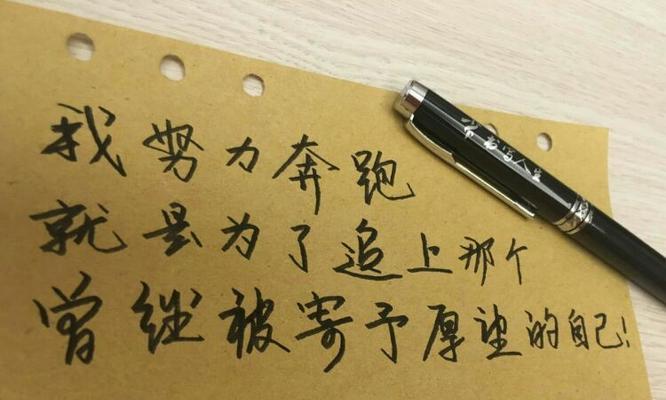 我努力奔跑
就是为了追上那个
曾经被寄予厚望的自己!
书写人生